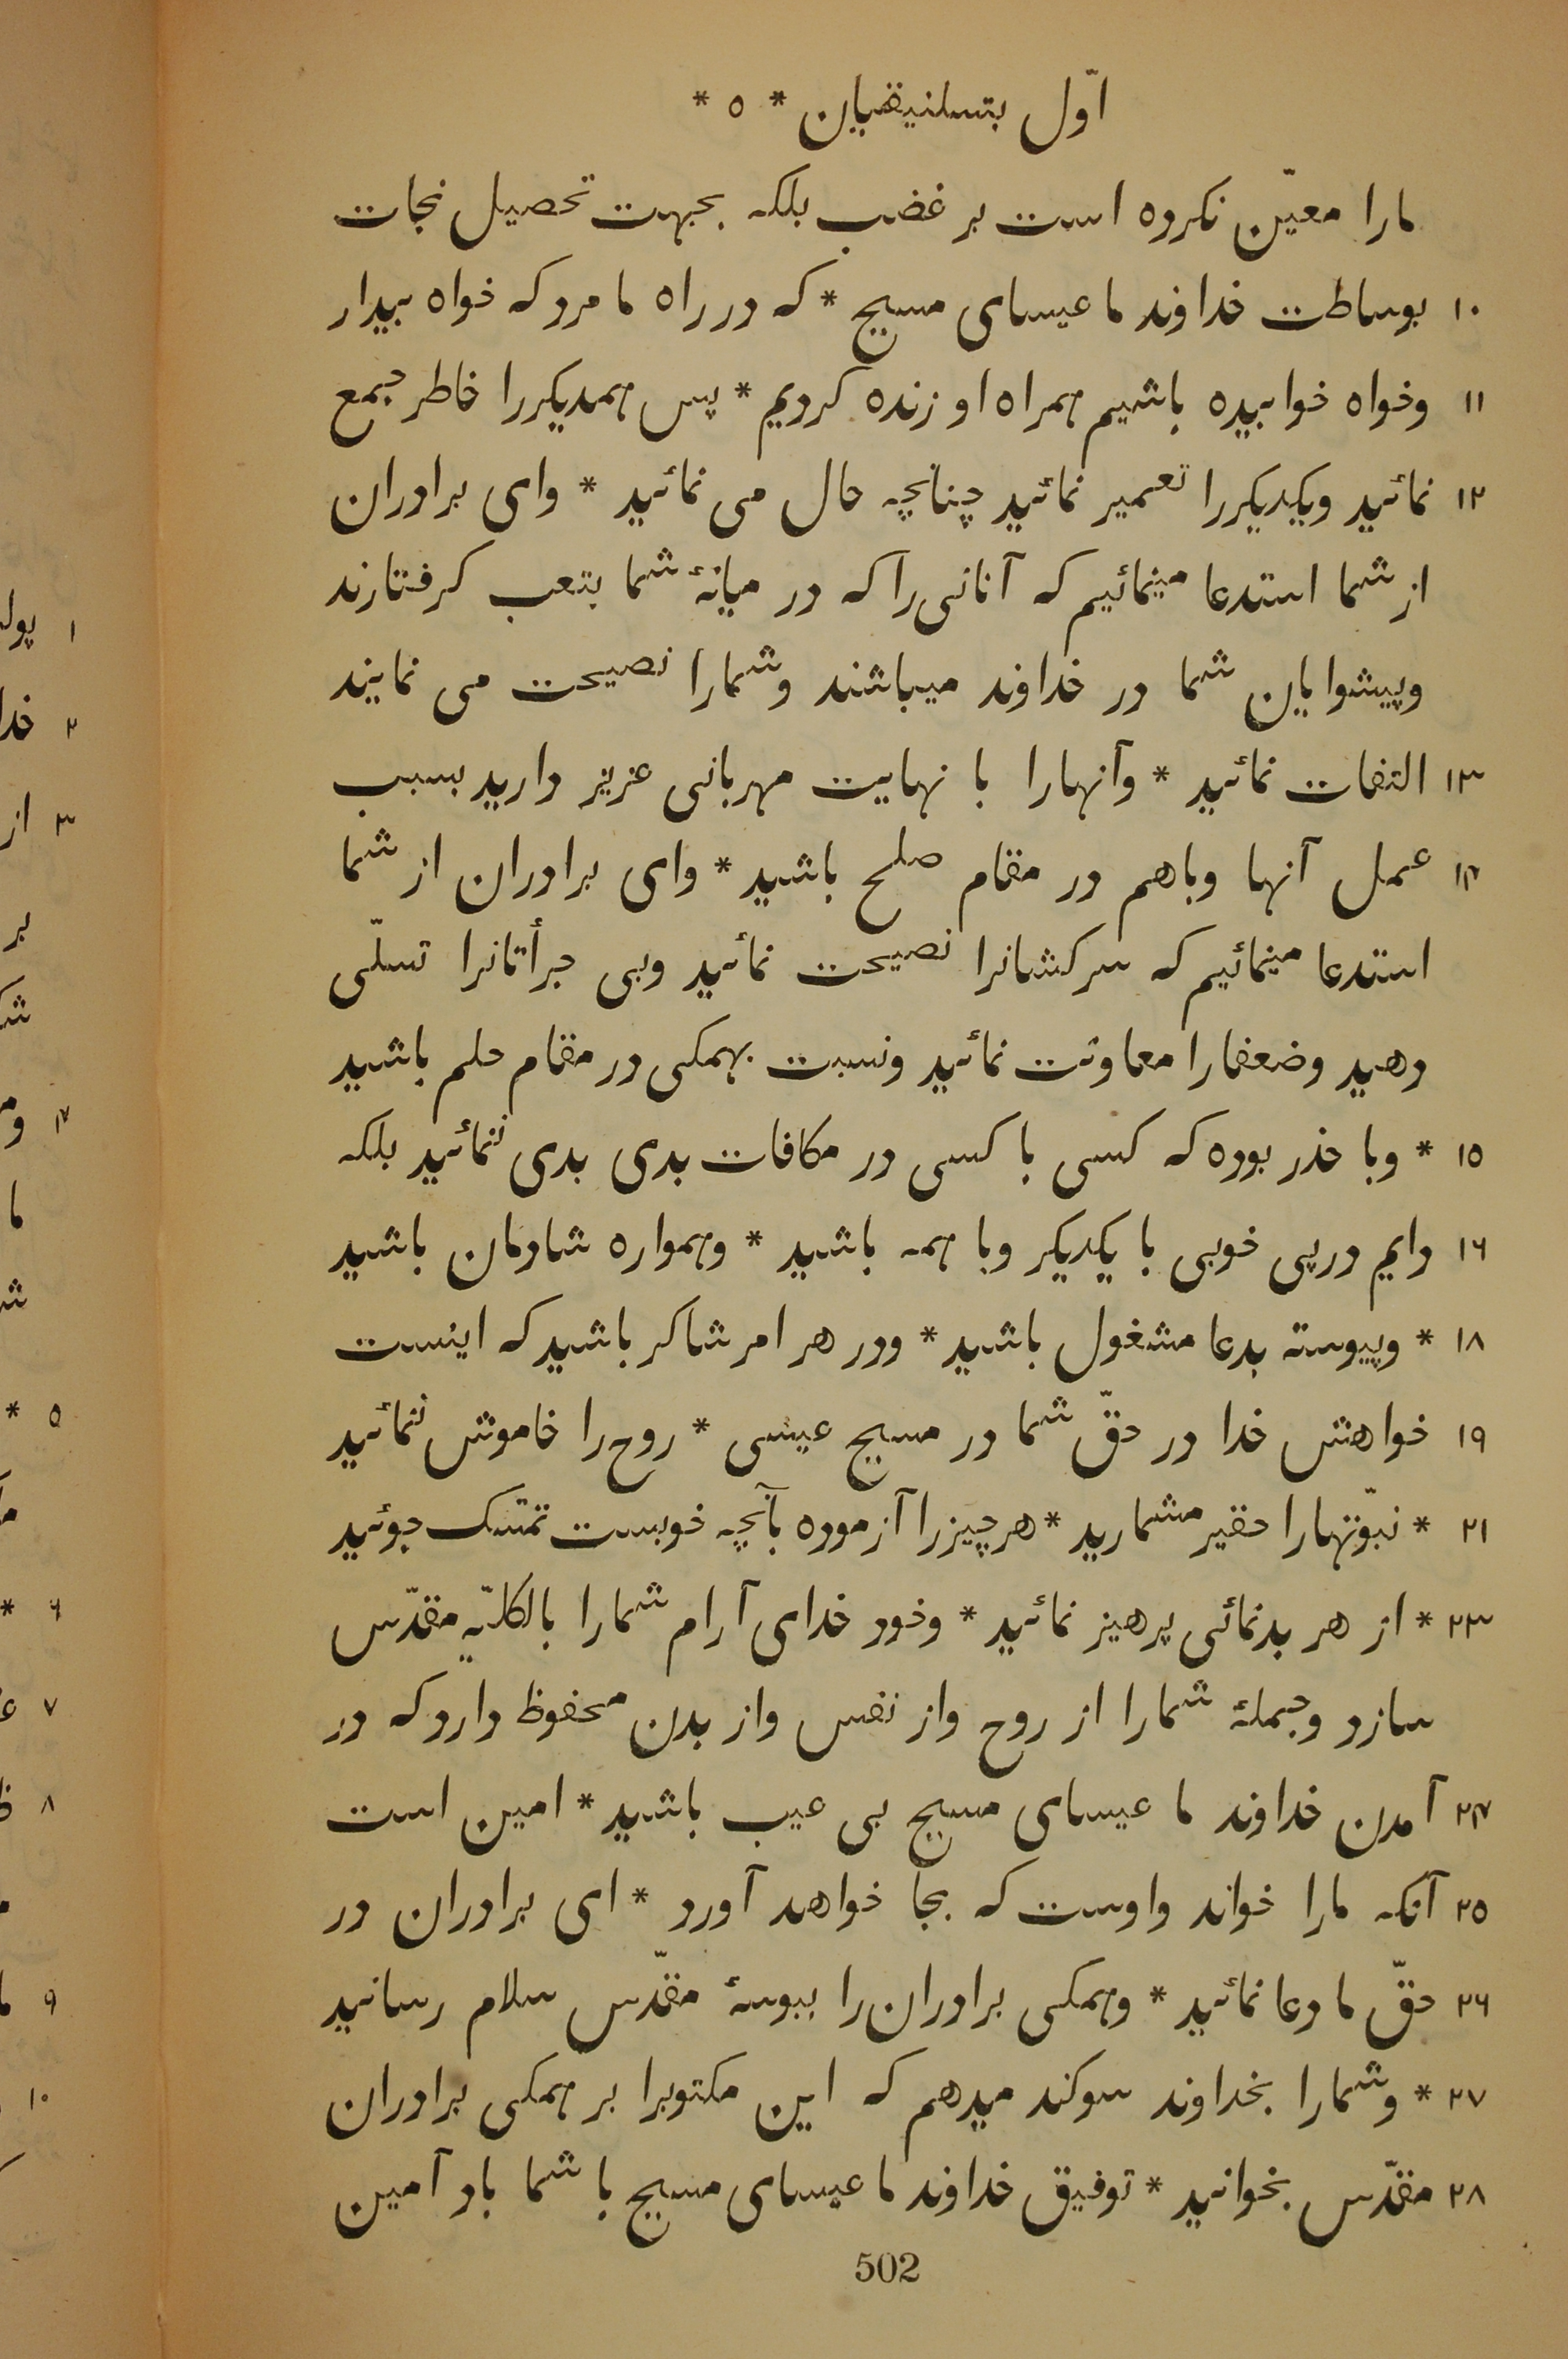 اوّل بتسلنیقیان * ۵ *
مارا معیّن نکرده است بر غضب بلکه بجهت تحصیل نجات
۱۰ بوساطت خداوند ما عیسای مسیح * که در راه ما مرد که خواه بیدار
۱۱ وخواه خوابیده باشیم همراه او زنده کردیم * پس همدیکررا خاطر جمع
۱۲ نمائید ویکدیکررا تعمیر نمائید چنانچه حال می نمائید * وای برادران
از شما استدعا مینمائیم که آنانی را که در میانهٔ شما بتعب کرفتارند
وپیشوایان شما در خداوند میباشند وشمارا نصیحت می نمایند
۱۳ التفات نمائید * وآنهارا با نهایت مهربانی عزیز دارید بسبب
۱۴ عمل آنها وباهم در مقام صلح باشید * وای برادران از شما
استدعا مینمائیم که سرکشانرا نصیحت نمائید وبی جرأتانرا تسلّی
دهید وضعفارا معاونت نمائید ونسبت بهمکی در مقام حلم باشید
۱۵ * وبا حذر بوده که کسی با کسی در مکافات بدی بدی ننمائید بلکه
۱۶ دایم در پی خوبی با یکدیکر وبا همه باشید * وهمواره شادمان باشید
۱۸ * وپیوسته بدعا مشغول باشید * ودر هر امر شاکر باشید که اینست
۱۹ خواهش خدا در حقّ شما در مسیح عیسی * روح را خاموش ننمائید
۲۱ * نبوّتهارا حقیر مشمارید * هر چیزرا آزموده بآنچه خوبست تمسّک جوئید
۲۳ * از هر بدنمائی پرهیز نمائید * وخود خدای آرام شمارا بالکلیّه مقدّس
سازد وجملهٔ شمارا از روح واز نفس واز بدن محفوظ دارد که در
۲۴ آمدن خداوند ما عیسای مسیح بی عیب باشید * امین است
۲۵ آنکه مارا خواند واوست که بجا خواهد آورد * ای برادران در
۲۶ حقّ ما دعا نمائید * وهمکی برادران را ببوسهٔ مقدّس سلام رسانید
۲۷ * وشمارا بخداوند سوکند میدهم که این مکتوبرا بر همکی برادران
۲۸ مقدّس بخوانید * توفیق خداوند ما عیسای مسیح با شما باد آمین
502